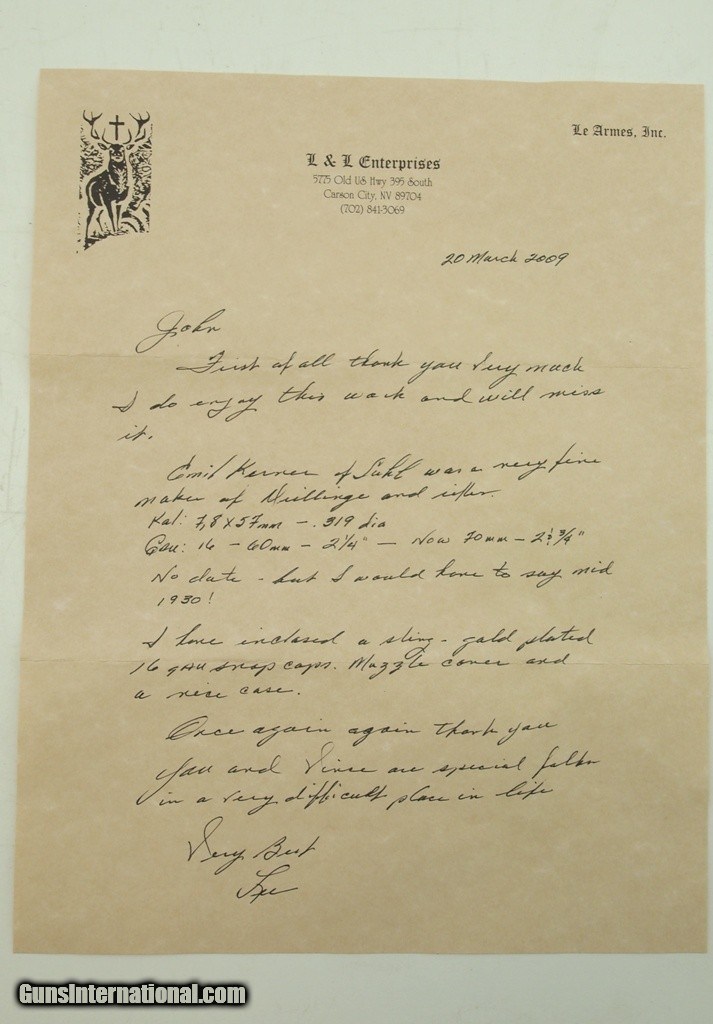 Le Armes, Inc.
L & L Enterprises
5775 Old US Hwy 395 South
Carson City, NV 89704
(702) 841-3069
20 March 2009
John
First of all thank you very much
I do enjoy this work and will miss
it.
Emil Kerner of Suhl was a very fine
maker of Drillinge and
Kal: 7,8 X 57mm - .319 dia
Gau: 16 - 60mm - 2 1/4" - Now 70mm - 2 3/4"
No date - but I would have to say mid
1930!
I have inclosed a sling - gold plated
16 gau snap caps. Muzzle cover and
a nice case.
Once again again thank you
You and Vince are special folks
in a very difficult place in life
Very Best
Lee
GunsInternational.com